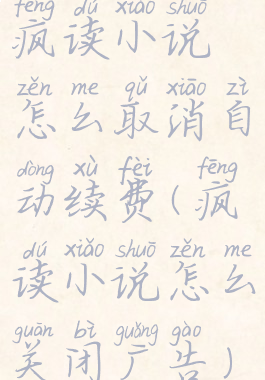 fēng dú xiǎo shuō
疯读小说
zěn me qǔ xiāo zì
怎么取消自
dòng xù fèi fēng
动续费(疯
dú xiǎo shuō zěn me
读小说怎么
guān bì guǎng gào
关闭广告)